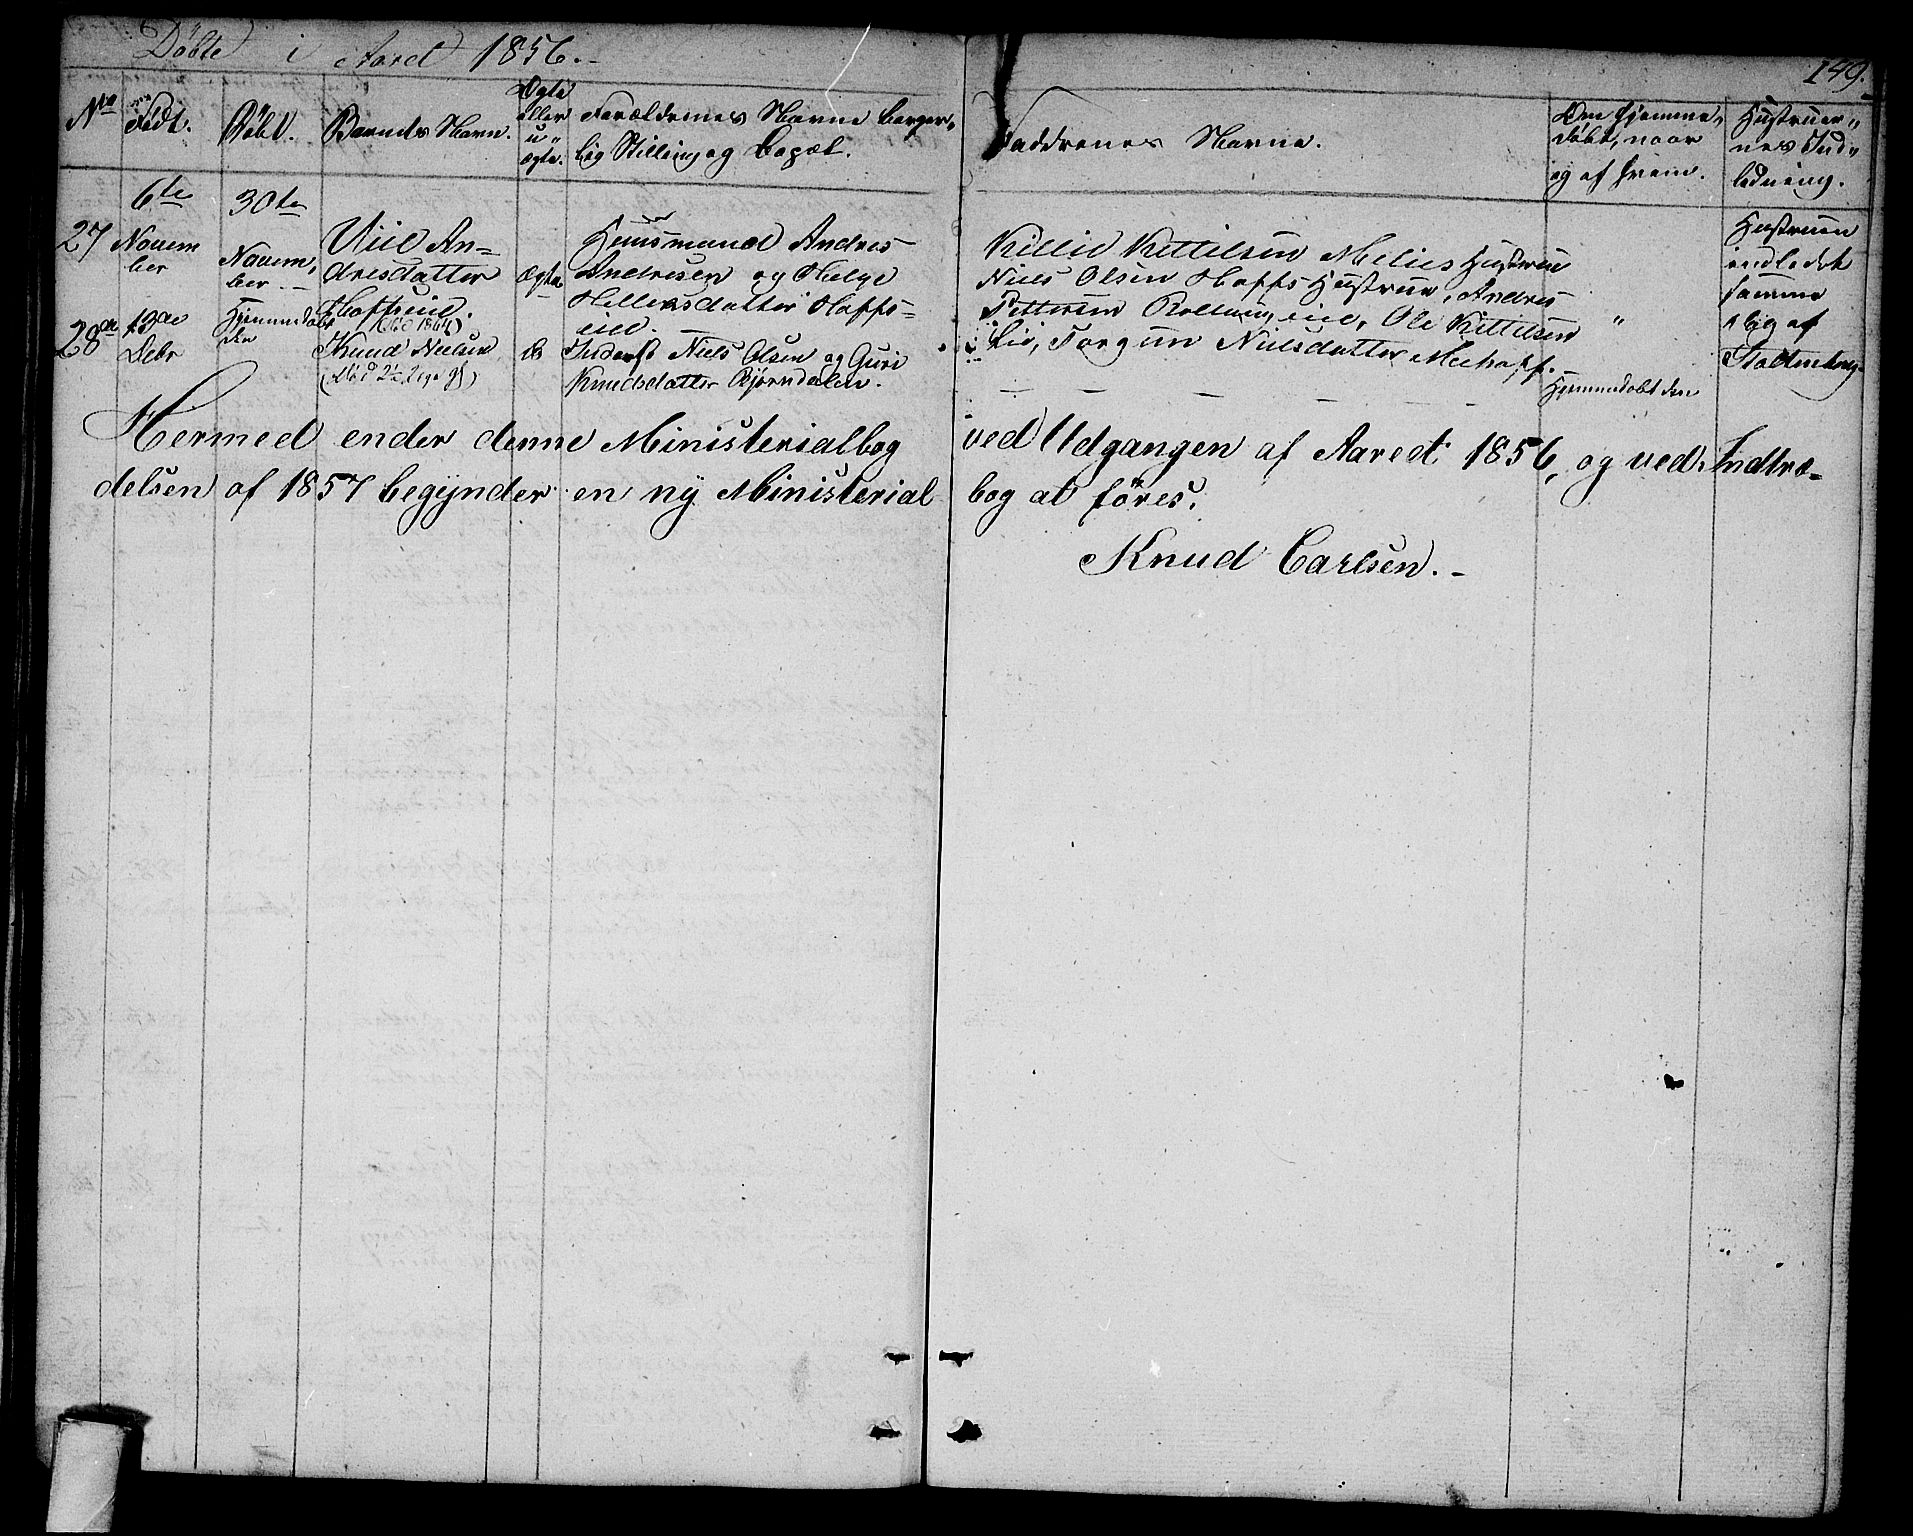 Döbte i Aaret 1856.
149.
No
Födt.
Döbt.
Barnets Navn.
Ægte
eller
u-
ægte.
Forældrenes Navne borger-
lig Stilling og Bopæl.
Faddrenes Navne.
Om hjemme-
döbt, naar
og af hvem.
Hustruer-
nes Ind-
ledning.
27
6te
Novem
ber
30te
Novem
ber.
An-
dresdatter
Hoffseie.
(död 1864)
Ægte
Huusmand Andres
Andresen og Helge
Hellersdatter Hoffs-
eie.
Kittil Kittilsen Melies Hustrue
Niels Olsen Hoffs Hustrue, Andres
Pettersen eie, Ole Kittilsen
Lie, Torgun Nielsdatter
"
Hustruen
indledet
samme
Dag af
Stoltenberg
28de
13de
Debr
Hjemmedöbt
den
Knud Nielsen
(död
Do
Inderst Niels Olsen og Guri
Knudsdatter Björndalen.
Hjemmedöbt den
Hermed ender denne Ministerialbog ved Udgangen af Aaret 1856, og ved Indtræ-
delsen af 1857 begynder en ny Ministerial bog at föres.
Knud Carlsen.